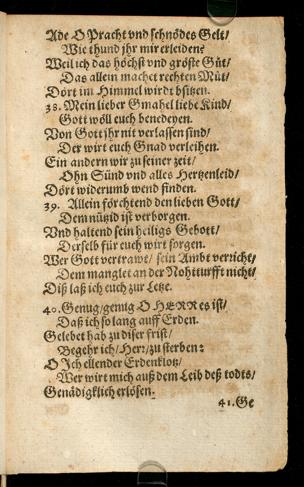 Ade O Pracht vnd schnödes Gelt/
Wie thund jhr mir erleiden?
Weil ich das höchst vnd gröste Güt/
Das allein machet rechten Müt/
Dört im Himmel wirdt bsitzen.
38. Mein lieber Gmahel liebe Kind/
Gott wöll euch benedeyen.
Von Gott jhr nit verlassen sind/
Der wirt euch Gnad verleihen.
Ein andern wir zu seiner zeit/
Ohn Sünd vnd alles Hertzenleid/
Dört widerumb wend finden.
39. Allein förchtend den lieben Gott/
Dem nützid ist verborgen.
Vnd haltend sein heiligs Gebott/
Derselb für euch wirt sorgen.
Wer Gott vertrawt/ sein Ambt verricht/
Dem manglet an der Nohtturfft nicht/
Diß laß ich euch zur Letze.
40. Genug/genug O HERR es ist/
Daß ich so lang auff Erden.
Gelebet hab zu diser frist/
Begehr ich/Herr/zu sterben:
O Ich ellender Erdenklotz/
Wer wirt mich auß dem Leib deß todts/
Genädigklich erlösen.
41. Ge